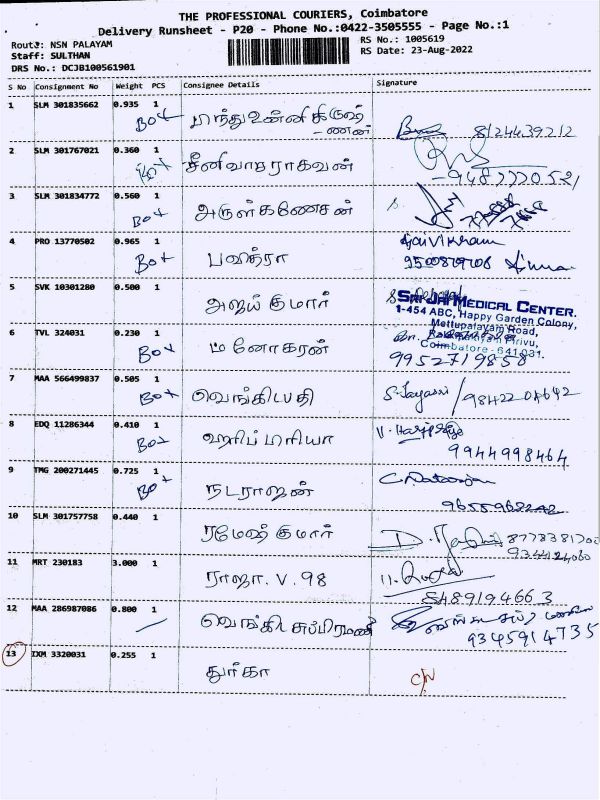 THE PROFESSIONAL COURIERS, Coimbatore
Delivery Runsheet - P20 - Phone No.:0422-3505555 - Page No.:1
Route: NSN PALAYAM RS No.: 1005619
Staff: SULTHAN RS Date: 23-Aug-2022
DRS No.: DCJB100561901
S No Consignment No Weight PCS Consignee Details Signature
1 SLM 301835662 0.935 1 Box பாந்து உன்னி கிருஷ்
-ணன் 8124439212
2 SLM 301767021 0.360 1 Box சீனிவாசராகவன்
3 SLM 301834772 0.560 1 Box அருள் கணேசன்
4 PRO 13770502 0.965 1 Box பவித்ரா Ajai Vikram
5 SVK 10301280 0.500 1 அஜய் குமார்
SAI JAI MEDICAL CENTER.
1-454 ABC, Happy Garden Colony,
Mettupalayam Road,
Coimbatore - 641 031.
6 TVL 324031 0.230 1 Box மனோகரன் 9952719858
7 MAA 566499837 0.505 1 Box வெங்கிடபதி S. Jayasri / 9842204642
8 EDQ 11286344 0.410 1 Box ஹரிப்பிரியா 9944998464
9 TMG 200271445 0.725 1 Box நடராஜன்
10 SLM 301757758 0.440 1 ரமேஷ் குமார்
11 MRT 230183 3.000 1 ராஜா. V. 98 8489194663
12 MAA 286987086 0.800 1 வெங்கிட சுப்பிரமணி 9345914735
13 IXM 3320031 0.255 1 துர்கா C/N